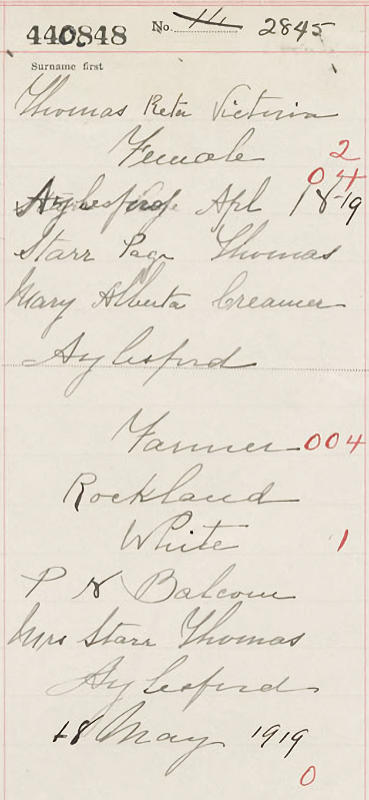 440848 No. 2845
Surname first
Thomas Reta Victoria
Female 2
04
Aylesford Apl 18-19
Starr Page Thomas
Mary Alberta Creamer
Aylesford
Farmer 004
Rockland
White 1
P N Balcom
Mrs Starr Thomas
Aylesford
18 May 1919
0